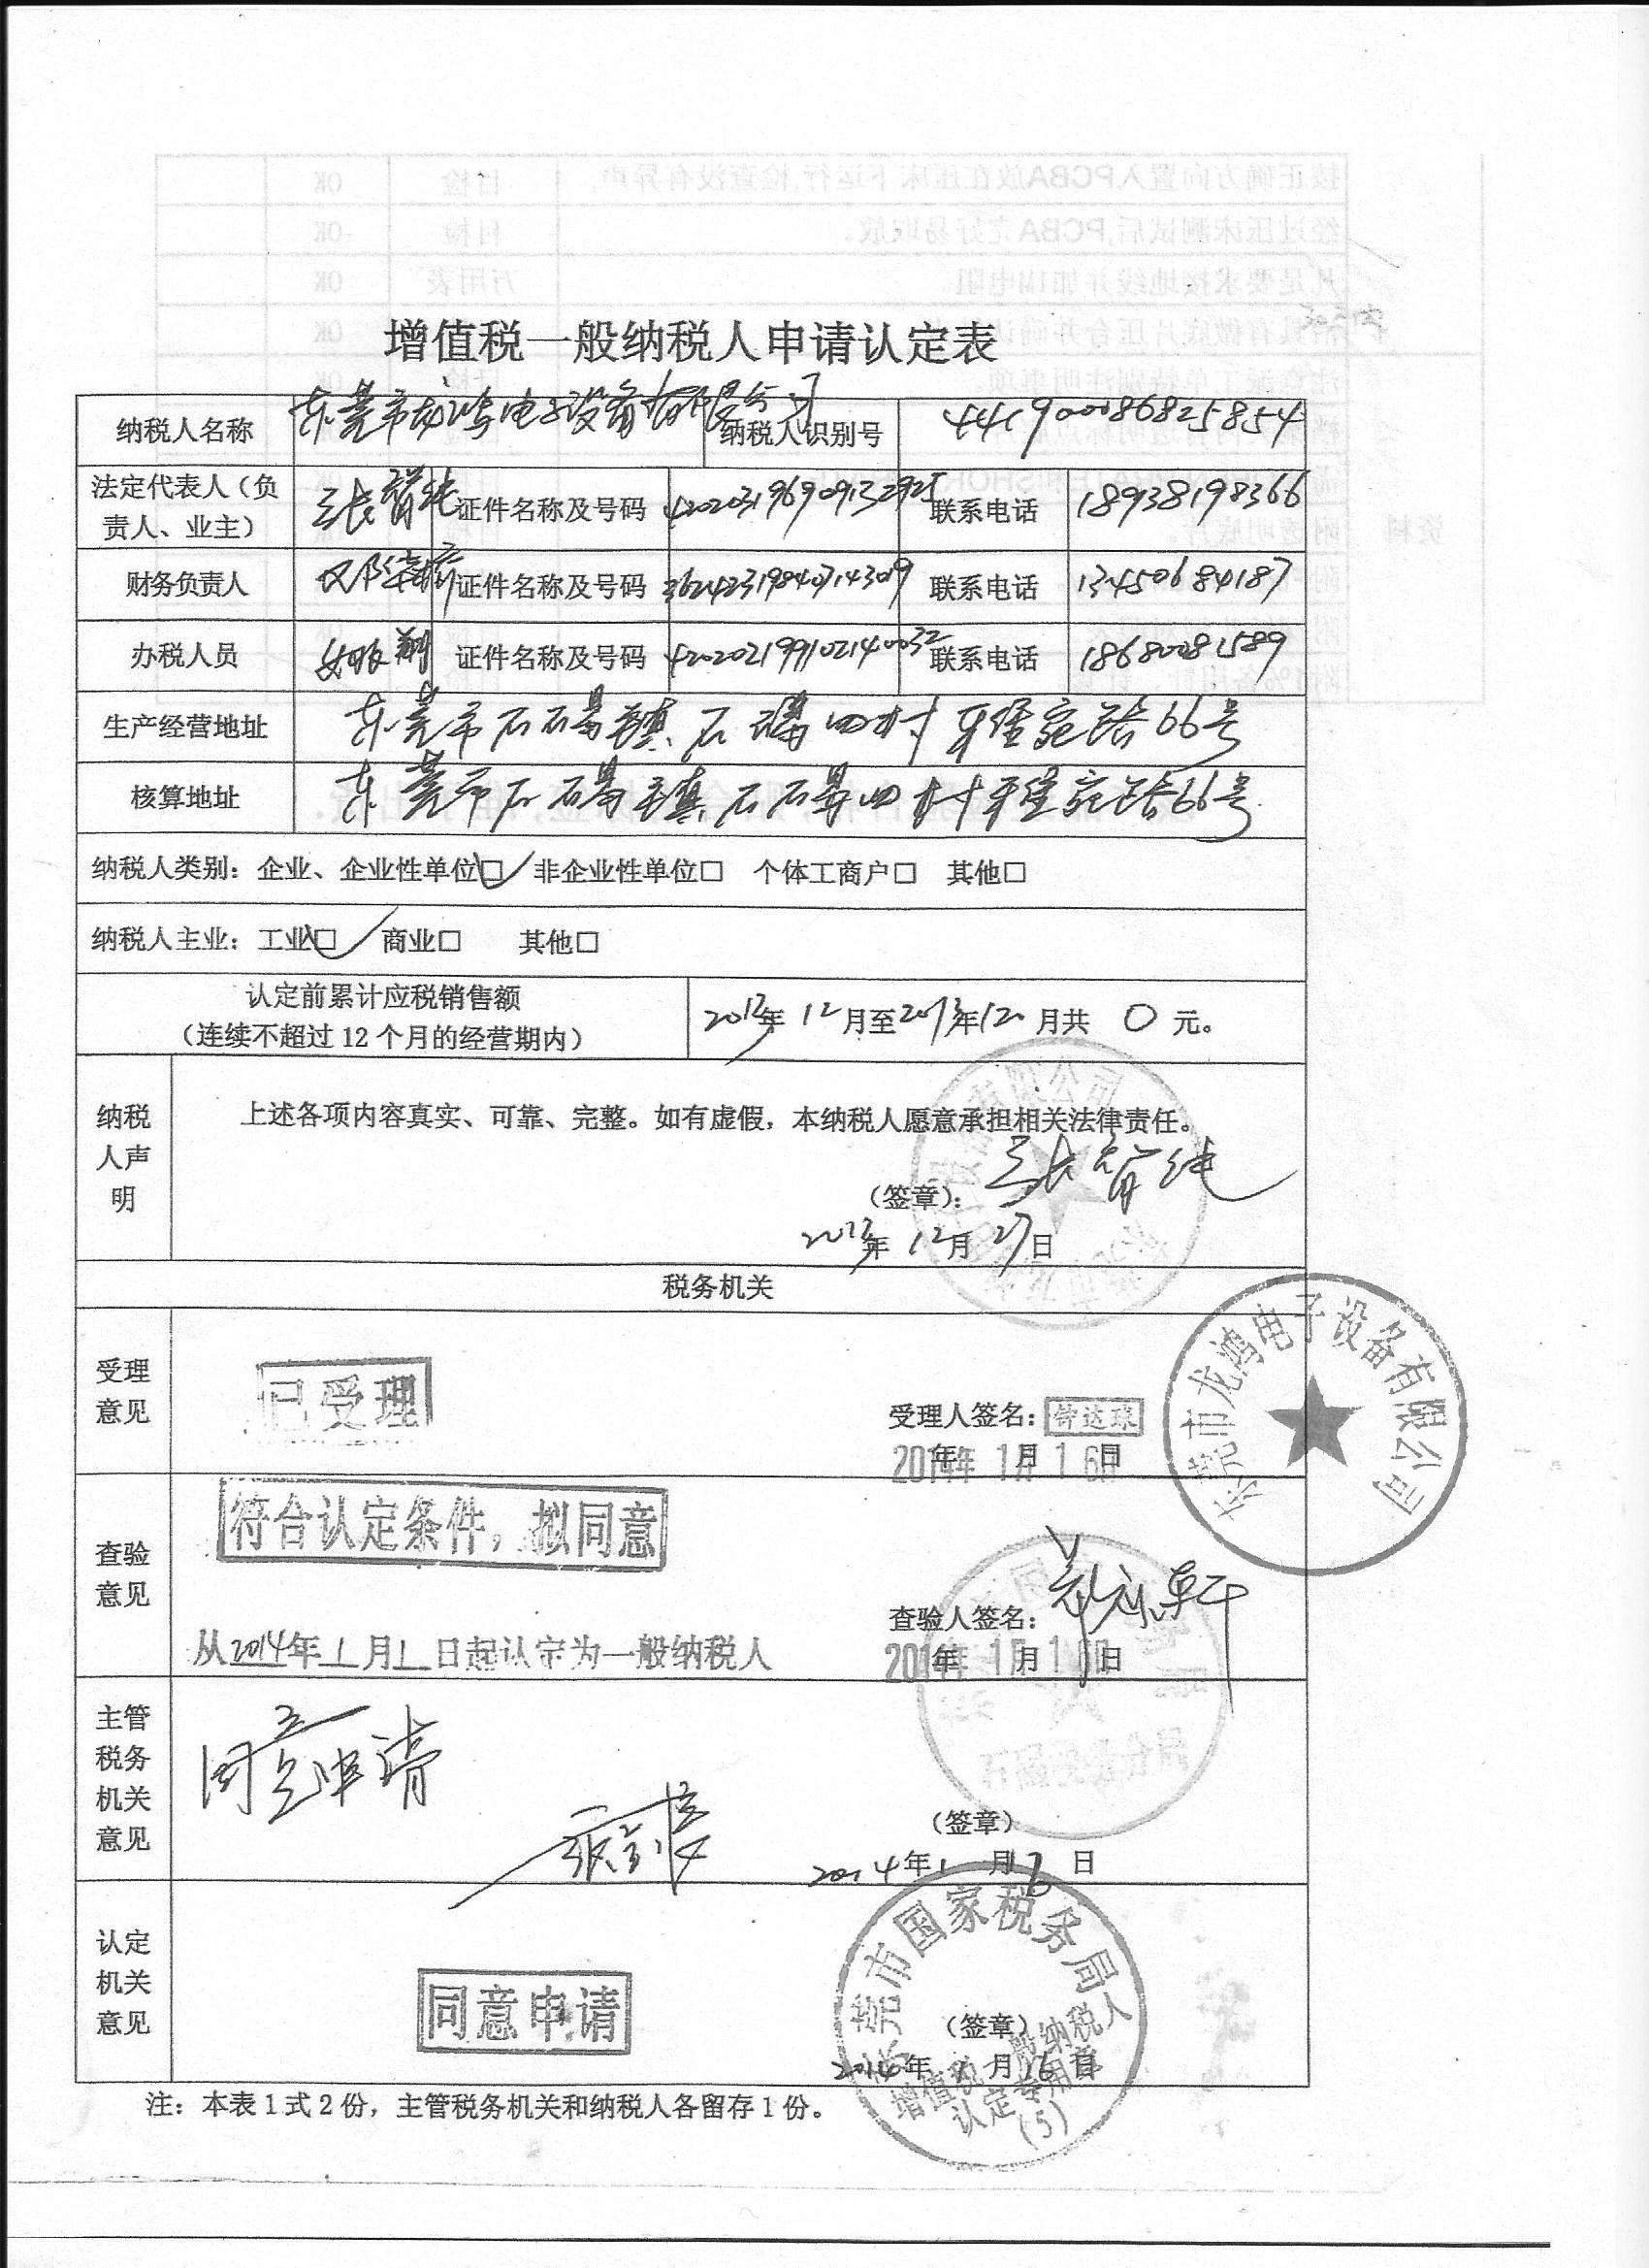 增值税一般纳税人申请认定表
纳税人名称 东莞市龙鸿电子设备有限公司 纳税人识别号 441900086825854
法定代表人（负责人、业主） 证件名称及号码 联系电话 18938198366
财务负责人 证件名称及号码 362423198407143019 联系电话 13450684187
办税人员 证件名称及号码 420202199102140032 联系电话 18680081589
生产经营地址 东莞市石碣镇石碣四村 路66号
核算地址 东莞市石碣镇石碣四村 路66号
纳税人类别：企业、企业性单位☑ 非企业性单位□ 个体工商户□ 其他□
纳税人主业：工业☑ 商业□ 其他□
认定前累计应税销售额
（连续不超过 12 个月的经营期内） 年 12 月至2013年12 月共 0 元。
纳税人声明
上述各项内容真实、可靠、完整。如有虚假，本纳税人愿意承担相关法律责任。
（签章）：
2013年 12月 27日
税务机关
受理意见
已受理
受理人签名：
2014年 1月 16日
东莞市龙鸿电子设备有限公司
查验意见
符合认定条件，拟同意
查验人签名：
从2014年1月1日起认定为一般纳税人
2014年 1月 16日
主管税务机关意见
同意申请
（签章）
2014年 1 月 16 日
认定机关意见
同意申请
（签章）
2014年 1 月 16 日
东莞市国家税务局
增值税一般纳税人
认定专用章
（5）
注：本表1式2份，主管税务机关和纳税人各留存1份。